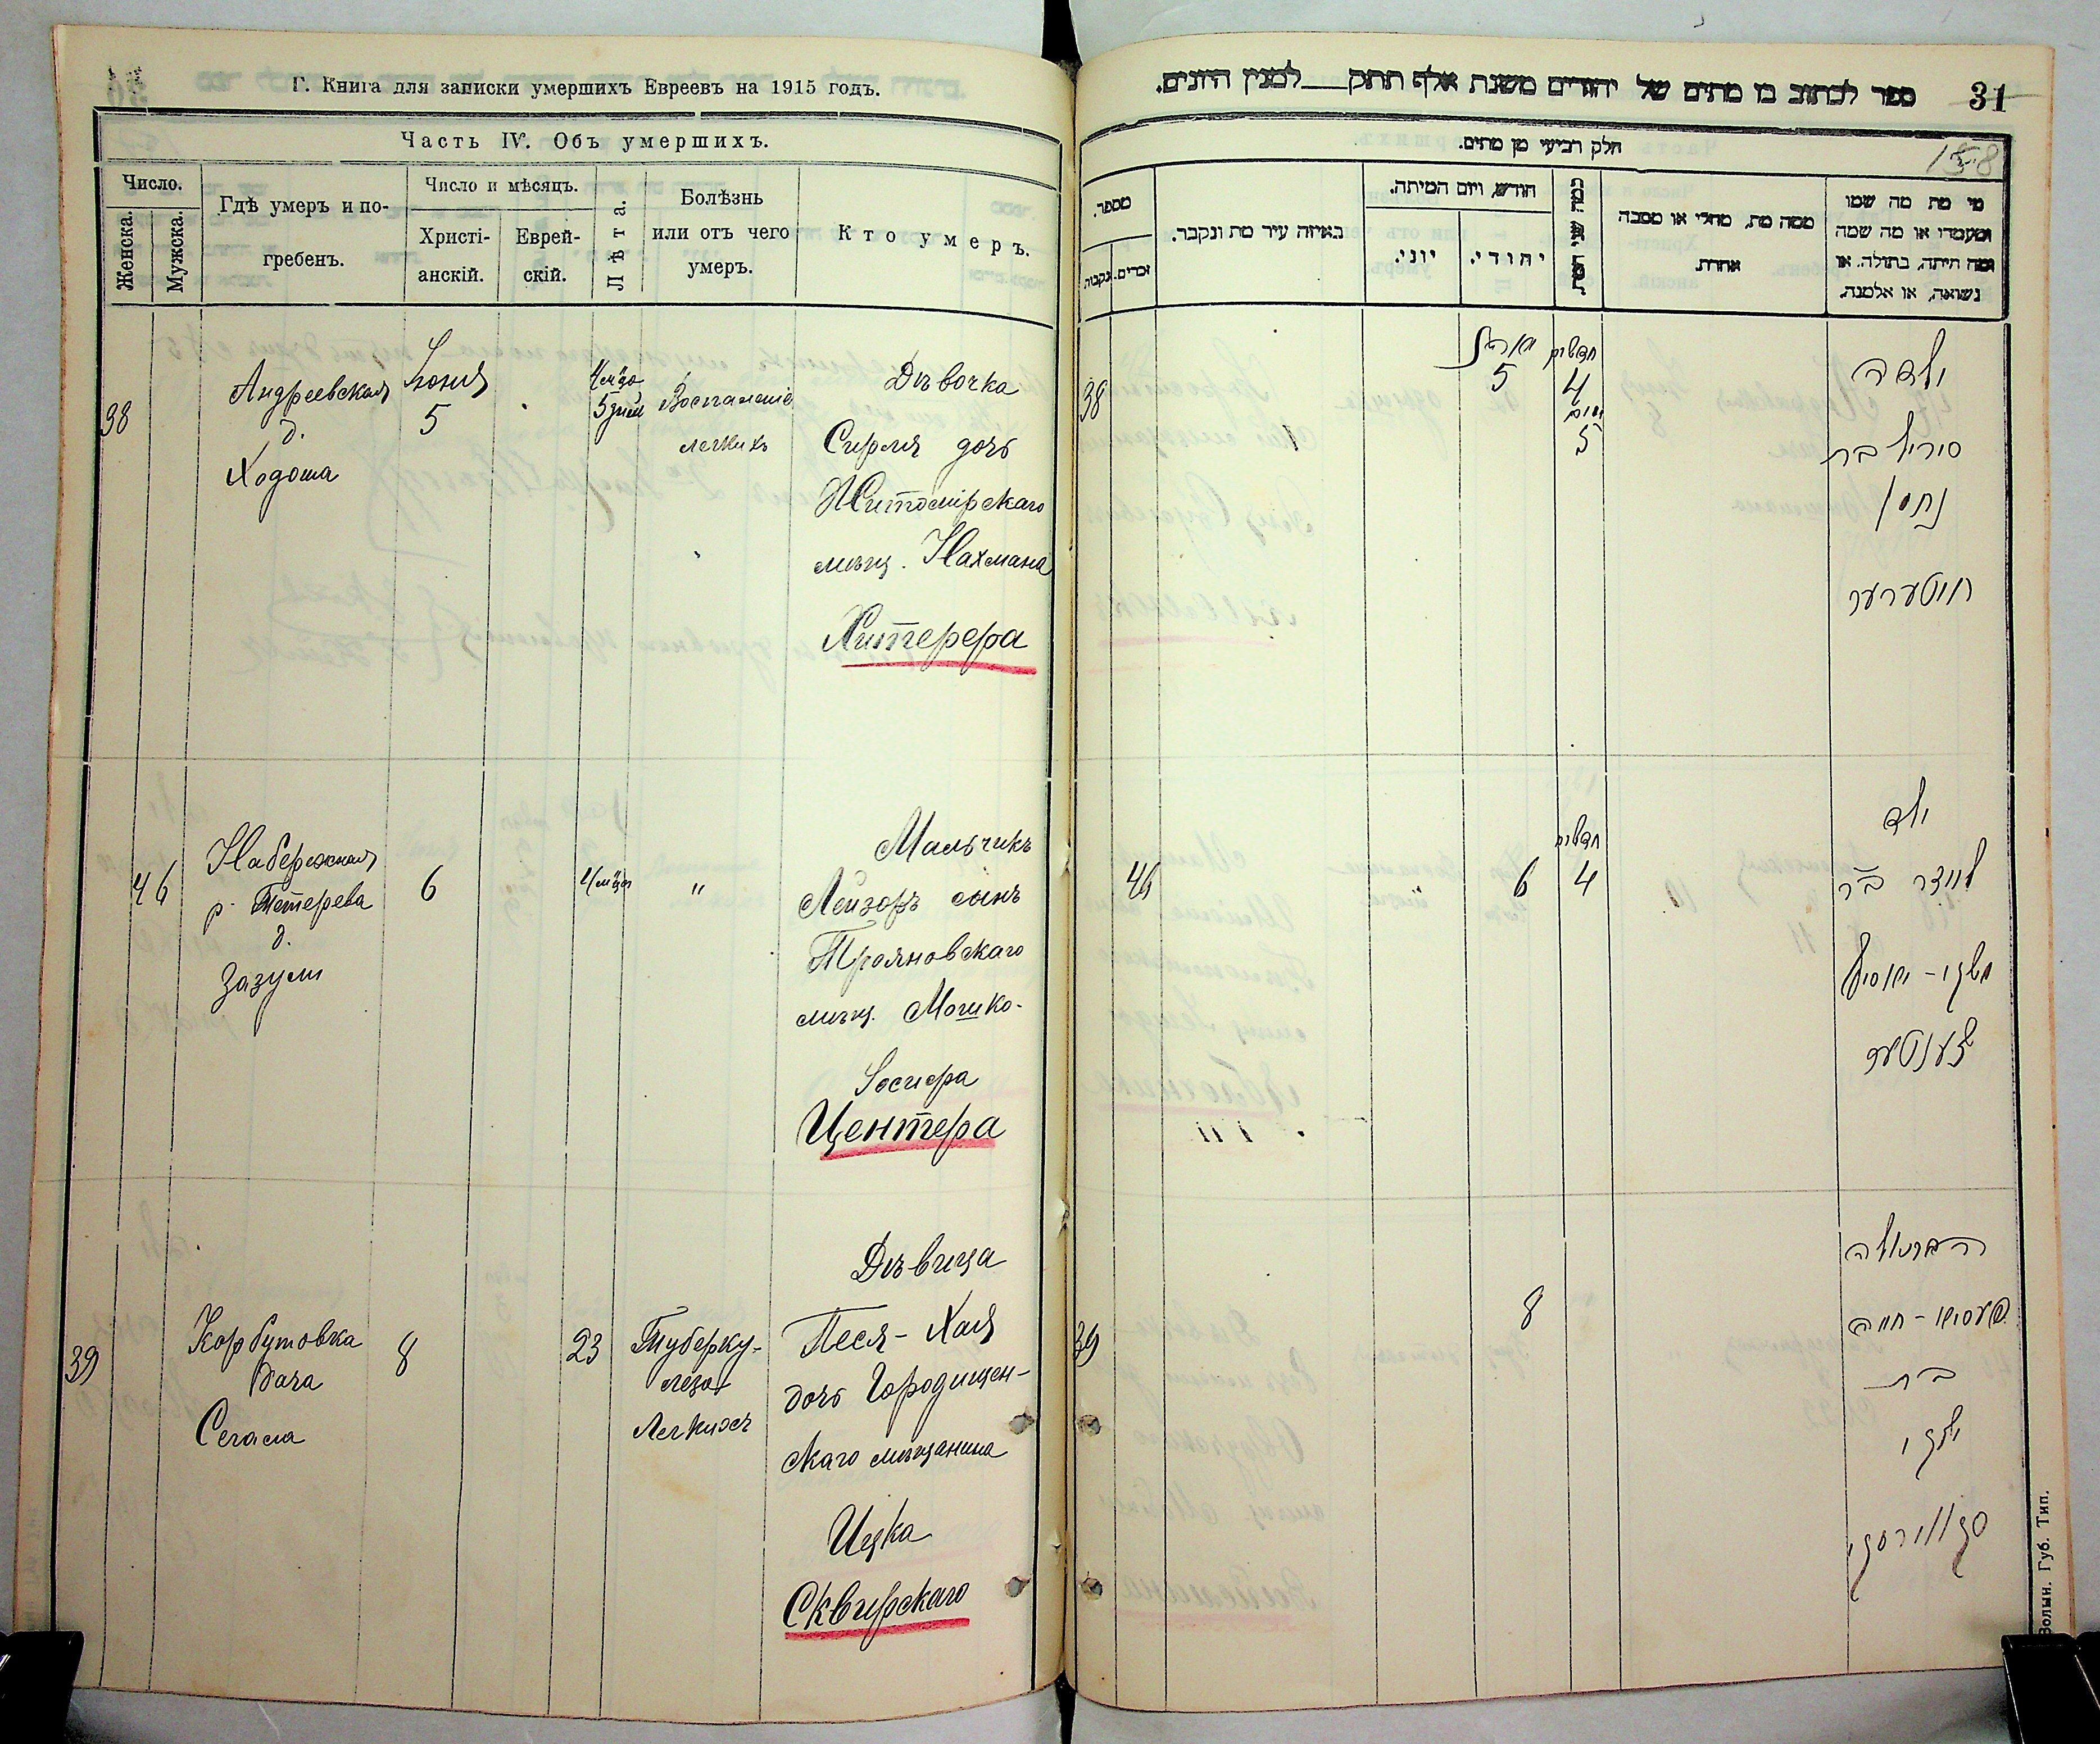 Г. Книга для записки умершихъ Евреевъ на 1915 годъ.
Часть IV. Объ умершихъ.
Число.
Женска.
Мужска.
Гдѣ умеръ и по-
гребенъ.
Число и мѣсяцъ.
Христі-
анскій.
Еврей-
скій.
Лѣта.
Болѣзнь
или отъ чего
умеръ.
Кто умеръ.
38
Андреевская
д.
Ходоша
Іюня
5
4 м-ца
5 дней
Воспаленіе
легкихъ
Дѣвочка
Сирля дочь
Житомірскаго
мѣщ. Нахмана
Хитерера
46
Набережная
р. Тетерева
д.
Зазули
6
4 м-ца
"
Мальчикъ
Лейзоръ сынъ
Трояновскаго
мѣщ. Мошко-
Іосифа
Центера
39
Корбутовка
дача
Сегала
8
23
Туберку-
леза
Легкихъ
Дѣвица
Песя-Хая
дочь Городищен-
скаго мѣщанина
Ицка
Сквирскаго
ספר לכתוב בו מתים של יהודים משנת אלף תתק___למנין היונים.
31
158
חלק רביעי מן מתים.
מספר.
נקבות.
זכרים.
באיזה עיר מת ונקבר.
חודש, ויום המיתה.
יוני.
יהודי.
ממה מת, מחלי או מסבה
אחרת.
מי מת מה שמו
ומעמדו או מה שמה
ומה היתה, בתולה, או
נשואה, או אלמנה.
38
5
חדשים
4
ימים
5
ילדה
סיריל בת
נחמן
חיטערער
46
6
חדשים
4
ילד
לייזר ב"ר
משקי-יאסיל
צענטער
39
8
הבתולה
פעסיא-חייה
בת
יצקי
סקווירסקי
Волын. Губ. Тип.